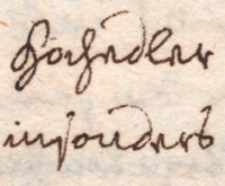 Hochedler
insonders